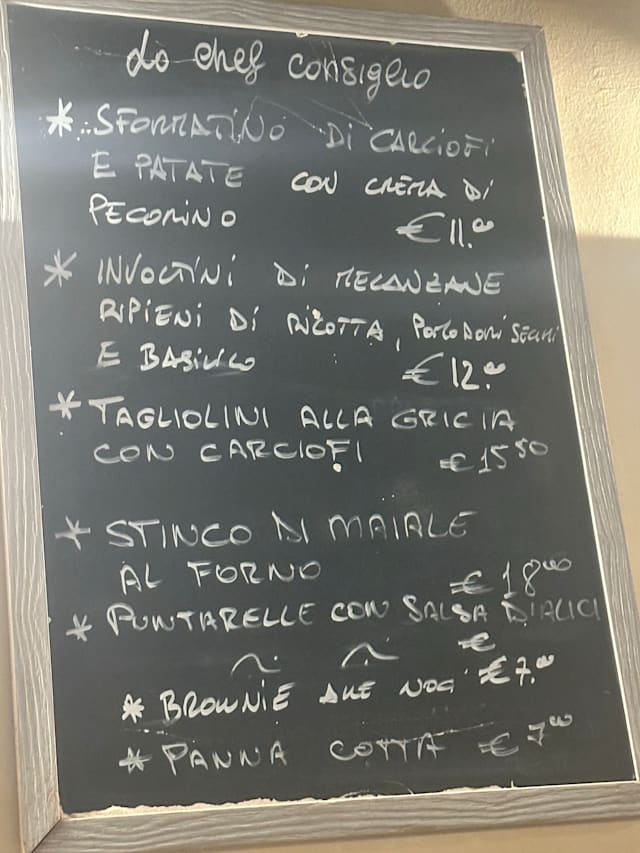 Lo chef consiglio
* SFORMATINO DI CARCIOFI
E PATATE CON CREMA DI
PECORINO €11.00
* INVOLTINI DI MELANZANE
RIPIENI DI RICOTTA, POMODORI SECCHI
E BASILICO €12.00
* TAGLIOLINI ALLA GRICIA
CON CARCIOFI €15.50
* STINCO DI MAIALE
AL FORNO €18.00
* PUNTARELLE CON SALSA D'ALICI
€
* BROWNIE ALLE NOCI €7.00
* PANNA COTTA €7.00